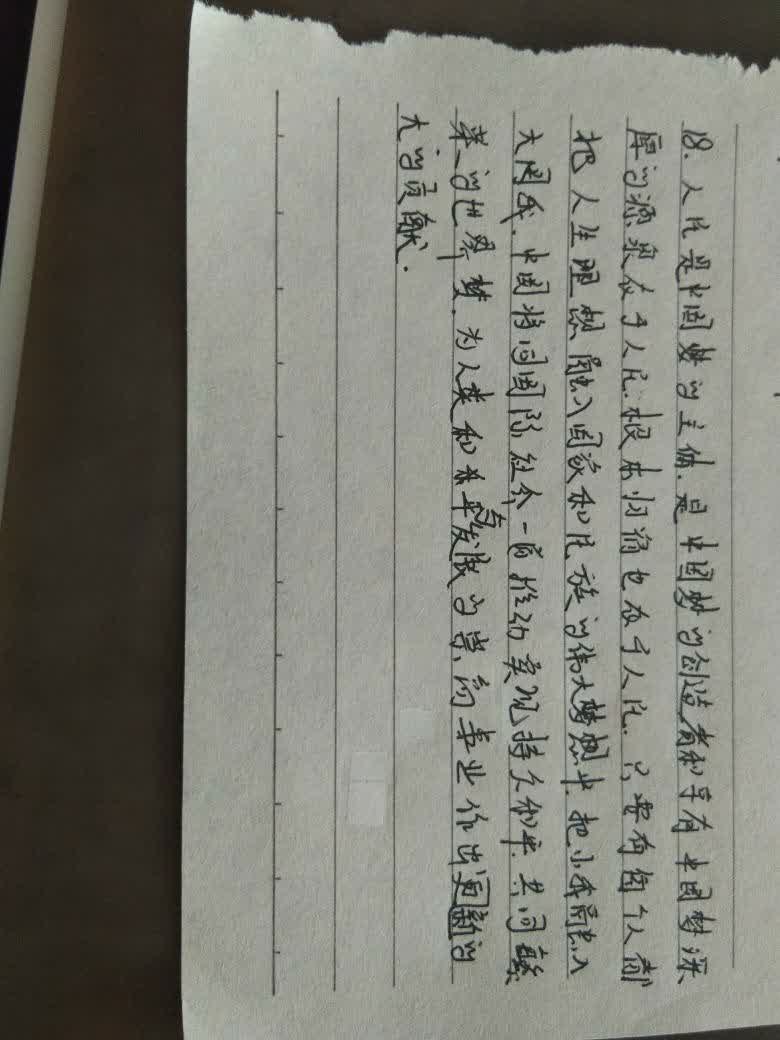 18.人民是中国梦的主体.是中国梦的创造者和享有中国梦深
厚的源泉在于人民.根本归宿也在于人民.只要有每个人都
把人生理想融入国家和民族的伟大梦想中.把小我融入
大国我.中国将同国际社会一道推动实现持久和平.共同繁
荣的世界梦.为人类和平与发展的崇高事业作出更新的
大的贡献.